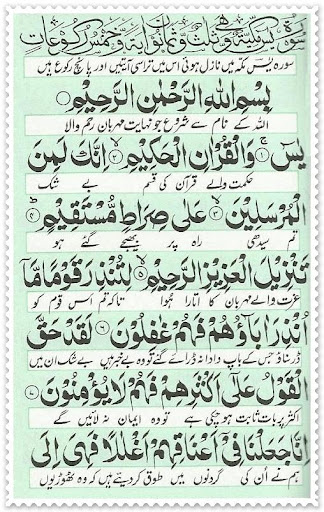 سورۃ یٰس مکیۃ وھی ثلث وثمانون اٰیۃ وخمس رکوعات
سورہ یٰس مکہ میں نازل ہوئی اس میں تراسی آیتیں اور پانچ رکوع ہیں
بِسْمِ اللّٰهِ الرَّحْمٰنِ الرَّحِيْمِ
اللہ کے نام سے شروع جو نہایت مہربان رحم والا
يٰسٓ ۚ ﴿۱﴾ وَالْقُرْاٰنِ الْحَكِيْمِ ﴿۲﴾ اِنَّكَ لَمِنَ
حکمت والے قرآن کی قسم بے شک
الْمُرْسَلِيْنَ ﴿۳﴾ عَلٰى صِرَاطٍ مُّسْتَقِيْمٍ ﴿۴﴾
تم سیدھی راہ پر بھیجے گئے ہو
تَنْزِيْلَ الْعَزِيْزِ الرَّحِيْمِ ﴿۵﴾ لِتُنْذِرَ قَوْمًا مَّاۤ
عزت والے مہربان کا اتارا ہوا تاکہ تم اس قوم کو
اُنْذِرَ اٰبَآؤُهُمْ فَهُمْ غٰفِلُوْنَ ﴿۶﴾ لَقَدْ حَقَّ
ڈر سناؤ جس کے باپ دادا نہ ڈرائے گئے تو وہ بے خبر ہیں بے شک ان میں
الْقَوْلُ عَلٰۤى اَكْثَرِهِمْ فَهُمْ لَا يُؤْمِنُوْنَ ﴿۷﴾
اکثر پر بات ثابت ہو چکی ہے تو وہ ایمان نہ لائیں گے
اِنَّا جَعَلْنَا فِيْۤ اَعْنَاقِهِمْ اَغْلٰلًا فَهِيَ اِلَى
ہم نے ان کی گردنوں میں طوق کر دیئے ہیں کہ وہ ٹھوڑیوں